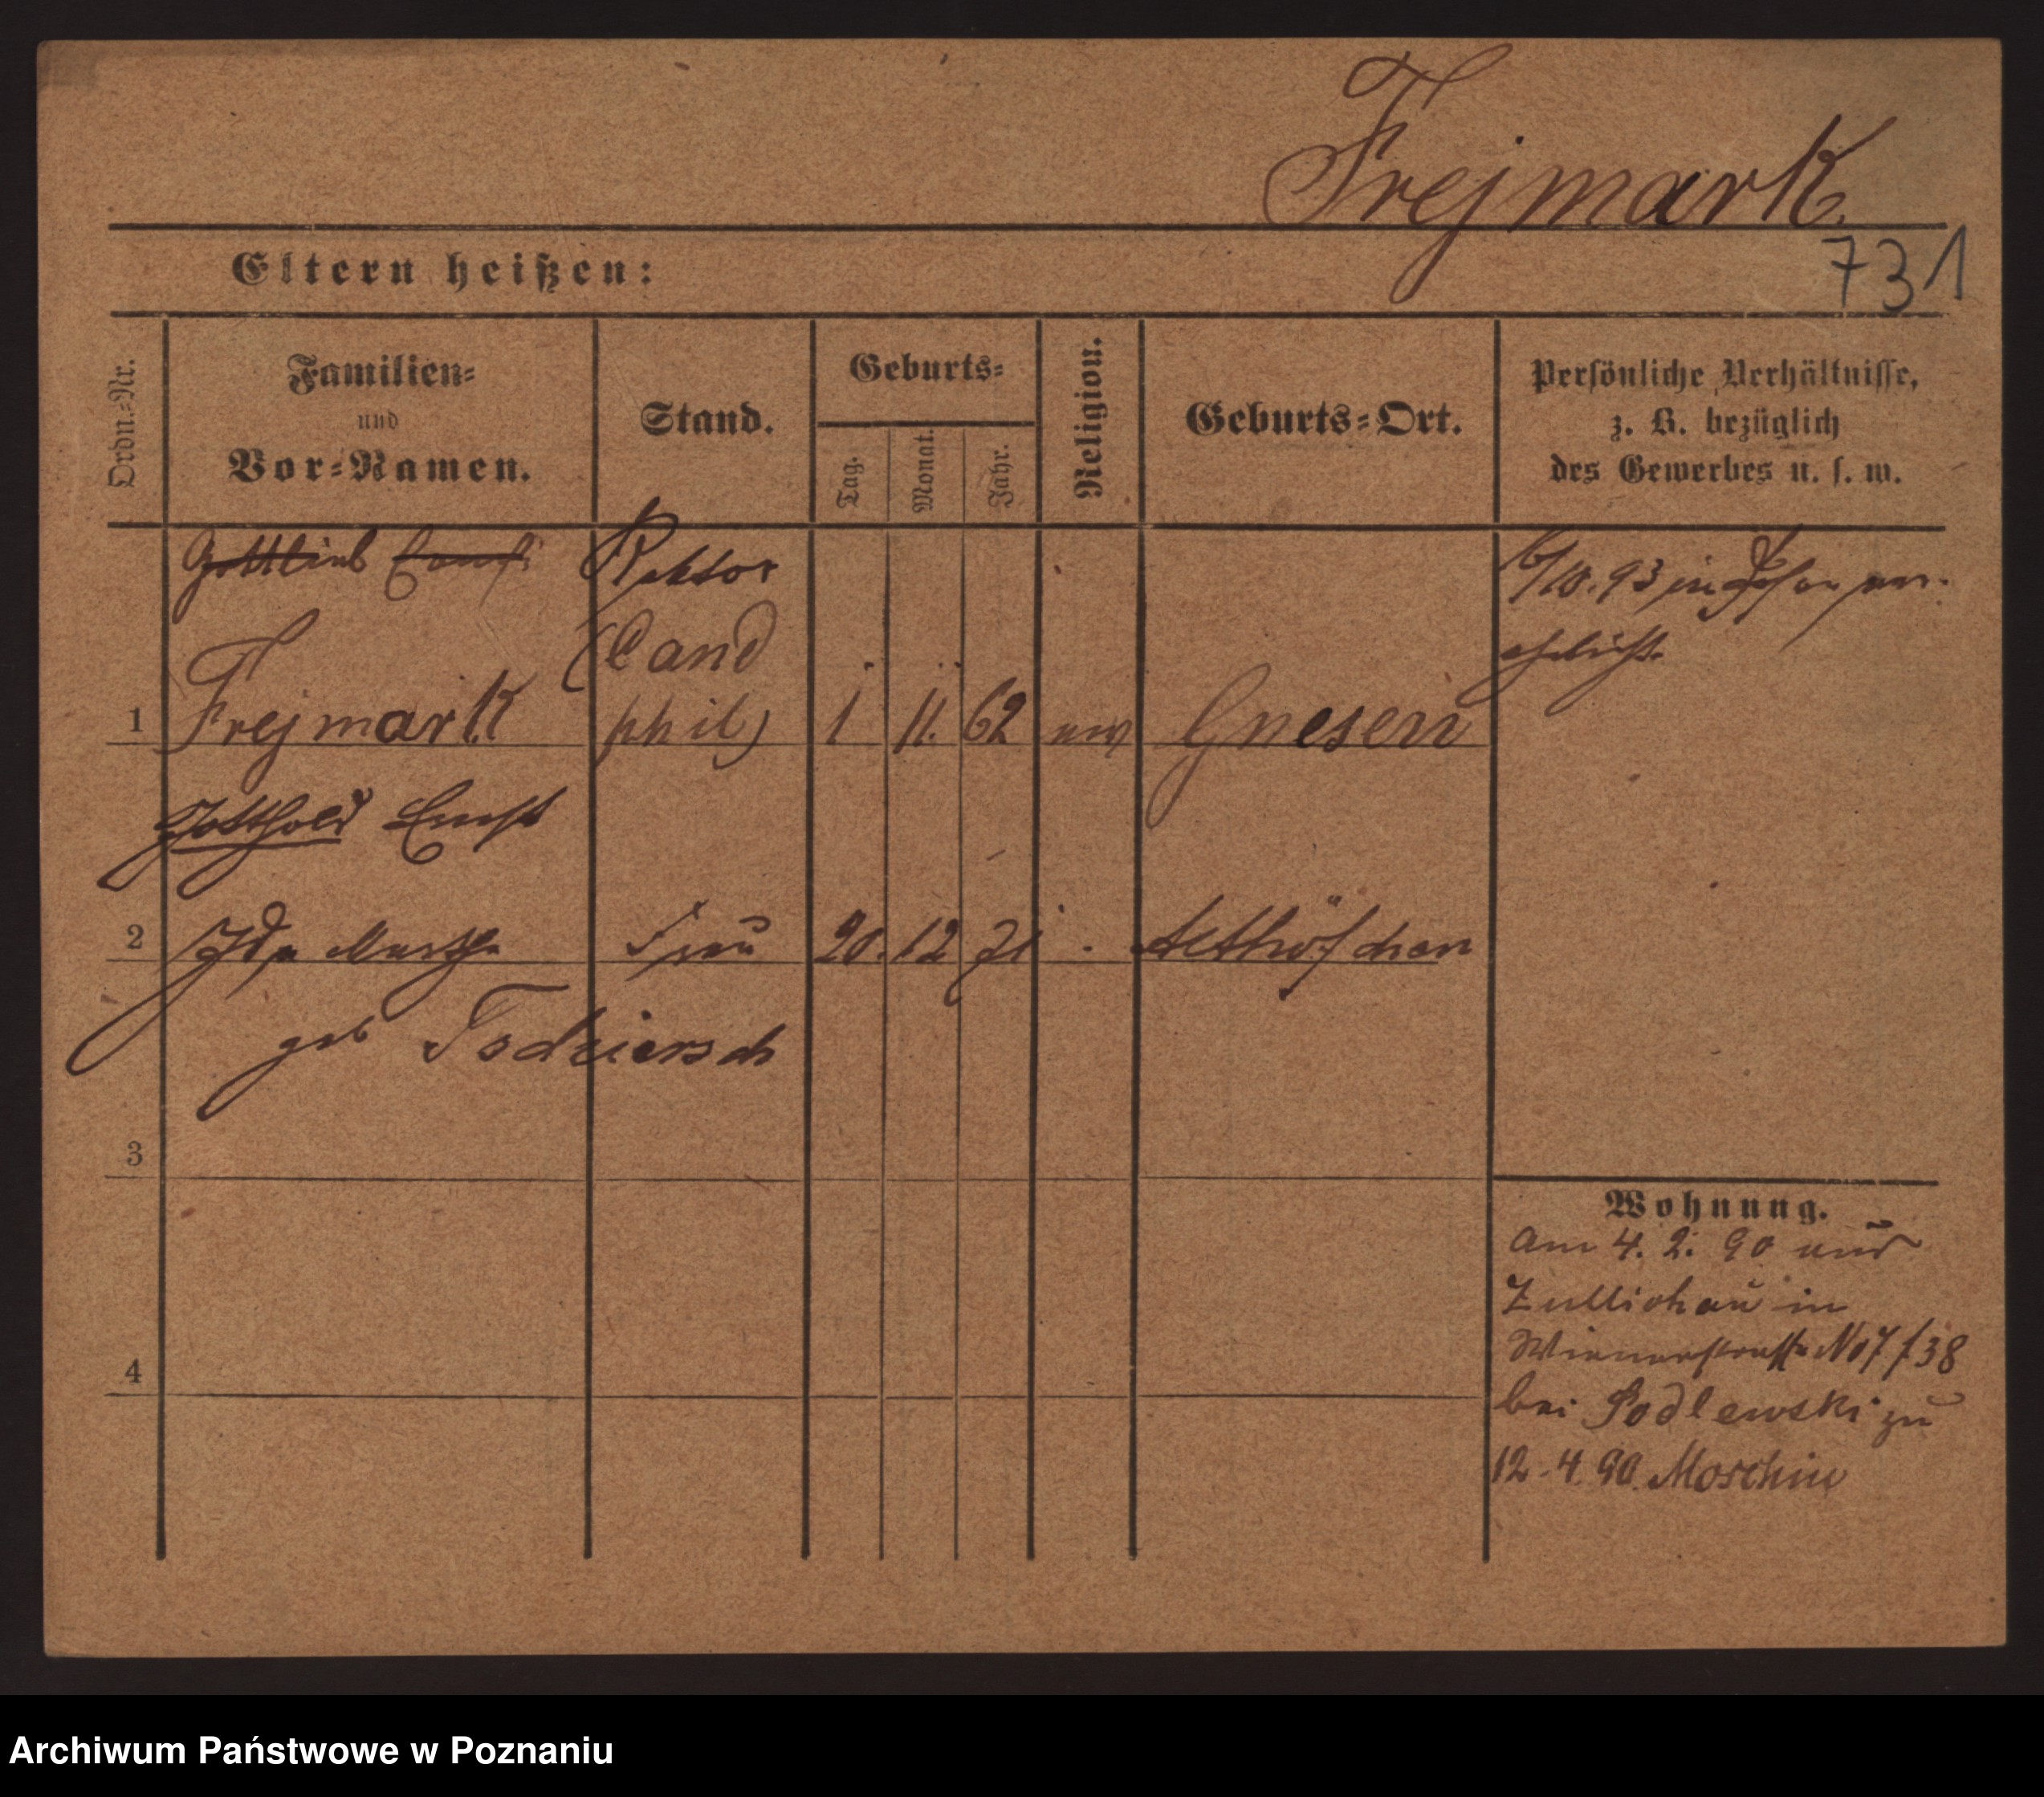 Frejmark.
731
Eltern heißen:
Ordn.-Nr.
Familien-
und
Vor-Namen.
Stand.
Geburts-
Tag.
Monat.
Jahr.
Religion.
Geburts-Ort.
Persönliche Verhältnisse,
z. B. bezüglich
des Gewerbes u. s. w.
Gottlieb
Rektor
(Cand
phil)
1 Frejmark 1 11. 62 Gnesen
/10. 93 in Posen ver-
ehelicht.
Gotthold Ernst
2 Ida Martha Frau 20. 12 71 Althöfchen
geb
3
4
Wohnung.
am 4. 2. 90 aus
Züllichau in
Wienerstrasse No 7
bei Podlewski zu
12. 4. 90. Moschin
Archiwum Państwowe w Poznaniu